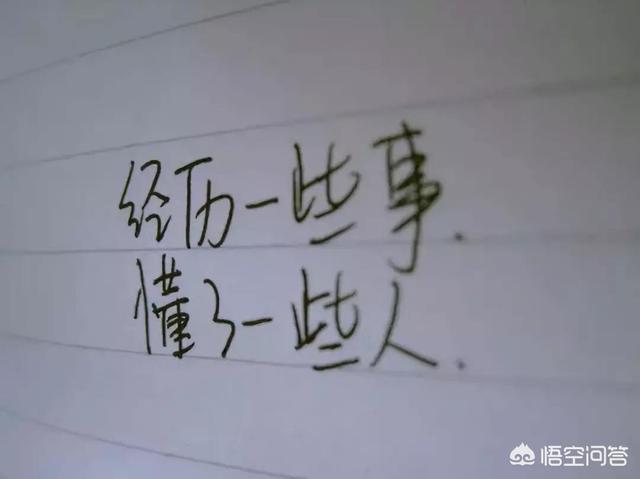 经历一些事.
懂了一些人.
悟空问答